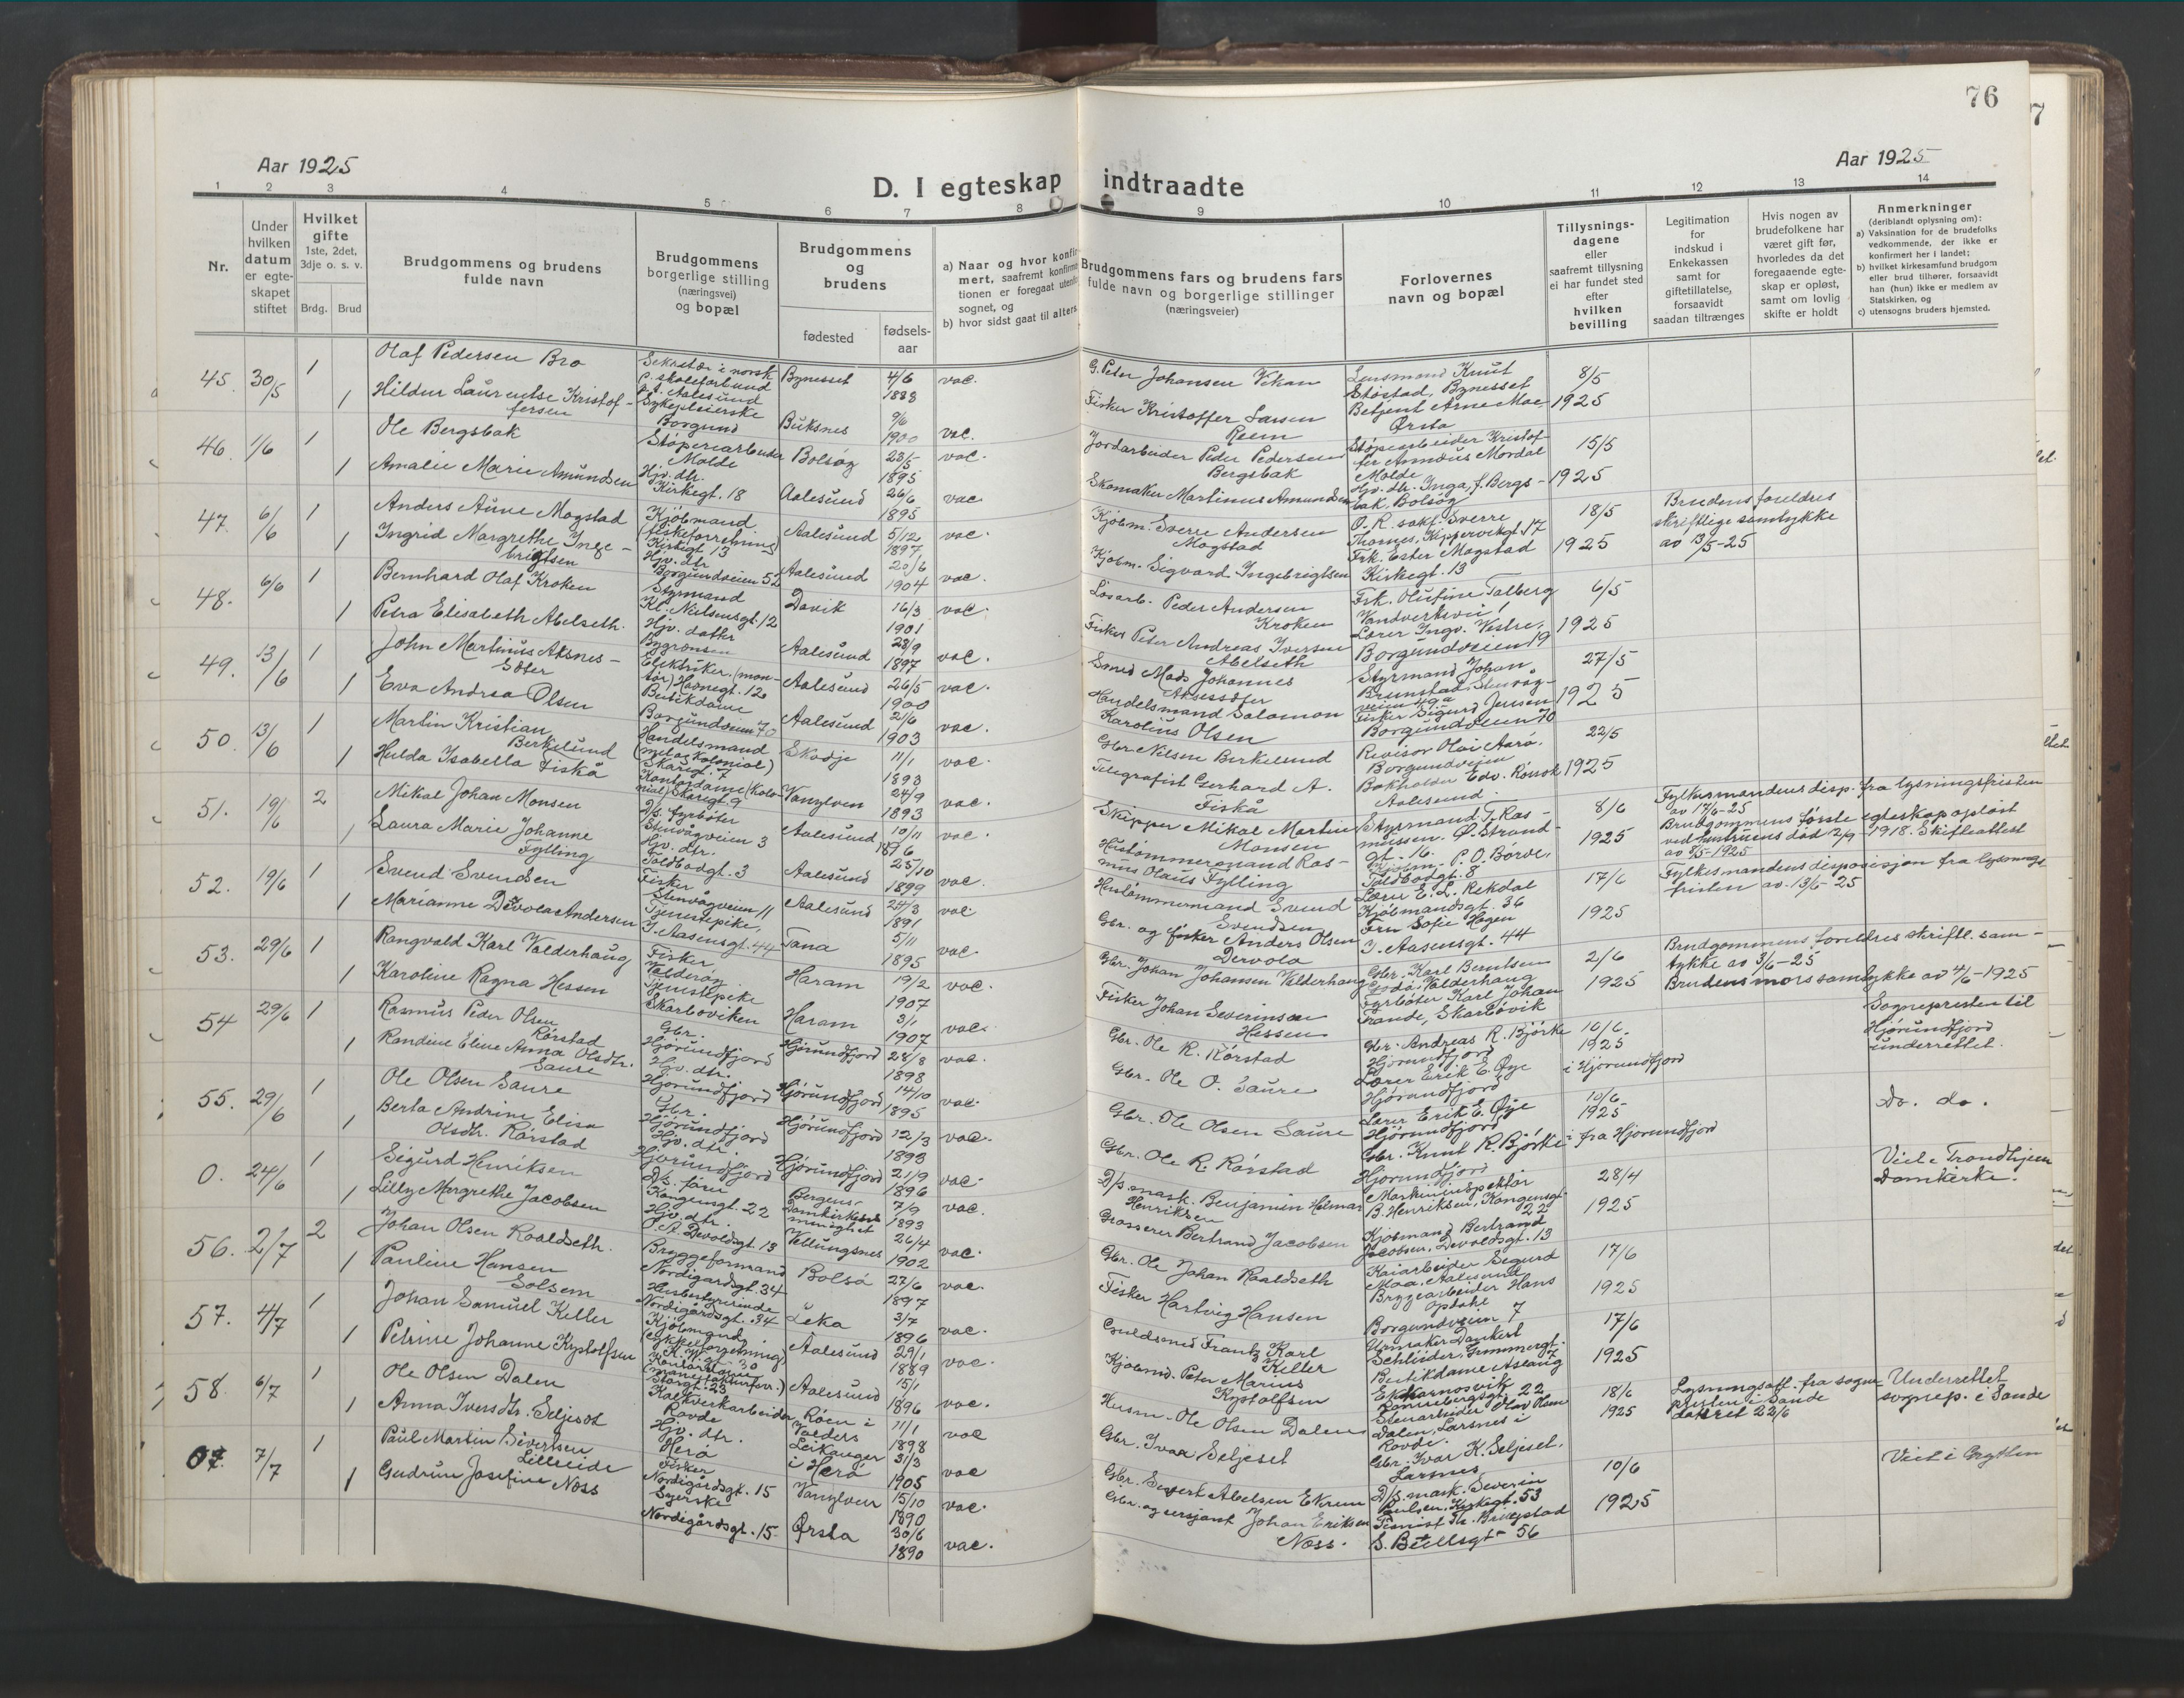 76
Aar 1925
Aar 1925
D. I egteskap indtraadte
1 2 3 4 5 6 7 8 9 10 11 12 13 14
Nr.
Under hvilken datum er egteskapet stiftet
Hvilket gifte 1ste, 2det, 3dje o. s. v.
Brdg. Brud
Brudgommens og brudens fulde navn
Brudgommens borgerlige stilling (næringsvei) og bopæl
Brudgommens og brudens
fødested
fødsels-aar
a) Naar og hvor
b) hvor sidst gaat til alters
Brudgommens fars og brudens fars fulde navn og borgerlige stillinger (næringsveier)
Forlovernes navn og bopæl
Tillysnings-dagene eller saafremt tillysning ei har fundet sted efter hvilken bevilling
Legitimation for indskud i Enkekassen samt for giftetillatelse, forsaavidt saadan tiltrænges
Hvis nogen av brudefolkene har været gift før, hvorledes da det foregaaende egte-skap er opløst, samt om lovlig skifte er holdt
Anmerkninger
(deriblandt oplysning om):
a) Vaksination for de brudefolks vedkommende, der ikke er konfirmert her i landet;
b) hvilket kirkesamfund brudgom eller brud tilhører, forsaavidt han (hun) ikke er medlem av Statskirken, og
c) utensogns bruders hjemsted.
45. 30/5 1 Olaf Pedersen Bro
Sekretær i norsk
Bynesset 4/6 1888 vac.
G. Peter Johansen Vikan
Lensmand Knut Stöstad, Bynesset
8/5 1925
1 Hildur Laurentse Kristof-fersen
Sykepleierske Borgund
Buksnes 9/6 1900 vac.
Fisker Kristoffer Larsen Reem
Betjent Arne Moe Ørsta
46. 1/6 1 Ole Bergsbak
Støperiarbeider Molde
Bolsøy 23/5 1895 vac.
Jordarbeider Peder Pedersen Bergsbak
15/5 1925
1 Amalie Marie Amundsen
Hjv. dtr. Kirkegt. 18
Aalesund 26/6 1895 vac
Skomaker Martinus Amundsen
Hjv. dtr. Inga, f. Bergs-bak, Bolsøy
47. 6/6 1 Anders Aune Mogstad
Kjøbmand (fiskeforretning) Kirkegt. 13
Aalesund 5/12 1897 vac.
Kjøbm. Sverre Andersen Mogstad
O. R. sakf. Sverre
18/5 1925
Brudens foreldres skriftlige samtykke av 13/5-25
1 Ingrid Margrethe Inge-brigtsen
Hjv. dtr Borgundveien 52
Aalesund 20/6 1904 vac.
Kjøbm. Sigvard Ingebrigtsen
Frk. Ester Mogstad Kirkegt. 13
48. 6/6 1 Bernhard Olaf Kroken
Styrmand Kl. Nielsensgt. 12
Davik 16/3 1901 vac.
Løsarb. Peder Andersen Kroken
Frk. Olufine Talberg
6/5 1925
1 Petra Elisabeth Abelseth.
Hjv. datter
Aalesund 28/9 1897 vac.
Fisker Peter Andreas Iversen Abelseth
Lærer Ingv. Vestre, Borgundveien 19
49. 13/6 1 John Martinus Aksnes-
Elektriker (mon-tør) Havnegt. 12
Aalesund 26/5 1900 vac.
Smed Mads Johannes
Styrmand Johan
27/5 1925
1 Eva Andrea Olsen
Butikdame Borgundveien 70
Aalesund 21/6 1903 vac.
Handelsmand Salomon Karolius Olsen
Fisker Sigurd Jensen Borgundveien 70
50. 13/6 1 Martin Kristian Berkelund
Handelsmand (melog kolonial) Skaregt. 7
Skodje 11/1 1893 vac.
Gbr Nilsen Berkelund
Revisor Olai Aarö. Borgundveien
22/5 1925
1 Hulda Isabella Fiskå
Kontordame (kolo-nial) Skaregt. 9
Vanylven 24/9 1893 vac.
Telegrafist Gerhard A. Fiskå
Bokholder Edv. Aalesund
51. 19/6 2 Mikal Johan Monsen
D/s. fyrbøter Stenvågveien 3
Aalesund 10/11 1896 vac.
Skipper Mikal Martin Monsen
Styrmand T. Ras-mussen. Ø. Strand-gt. 16.
8/6 1925
Fylkesmandens disp. fra lysningsfristen av 17/6-25
Brudgommens første egteskap opløst ved hustruens død 2/9-1918. Skifteattest av 9/5-1925
1 Laura Marie Johanne Fylling
Hjv. dtr. Toldbodgt. 3
Aalesund 25/10 1899 vac.
Hustømmermand Ras-mus Olaus Fylling
Kjøbm. P. O. Børve, Toldbodgt. 8
52. 19/6 1 Svend Svendsen
Fisker Stenvågveien 11
Aalesund 24/3 1891 vac.
Hustømmermand Svend Svendsen
Lærer E. L. Rekdal Kjøbmandsgt. 36
17/6 1925
Fylkesmandens disposisjon fra lysnings fristen av. 13/6-25
1 Marianne Devola Andersen
Tjenestepike, I. Aasensgt. 44
Tana 5/11 1895 vac.
Gbr. og fisker Anders Olsen Dervola
Fru Sofie Hagen I. Aasensgt. 44
53. 29/6 1 Rangvald Karl Valderhaug
Fisker Valderøy
Haram 19/2 1907 vac.
Gbr. Johan Johansen Valderhaug
Gbr. Karl Berntsen Valderhaug
2/6 1925
Brudgommens foreldres skriftl. sam-tykke av 3/6-25
Brudens mors samtykke av 4/6-1925
1 Karoline Ragna Hessen
Tjenestepike Skarboviken
Haram 3/1 1907 vac.
Fisker Johan Severinsen Hessen
Fyrbøter Karl Johan Frande, Skarbövik
54 29/6 1 Rasmus Peder Olsen Rörstad
Gbr. Hjørundfjord
Hjørundfjord 28/8 1898 vac.
Gbr. Ole R. Rörstad
Gbr. Andreas R. Bjørke Hjørundfjord
10/6. 1925 i Hjørundfjord
Sognepresten til Hjørundfjord underrettet.
1 Randine Eline Anna Olsdtr. Saure
Hjv. dtr. Hjørundfjord
Hjørundfjord 14/10 1895 vac.
Gbr. Ole O. Saure
Lærer Erik E. Øye Hjørundfjord
55. 29/6 1 Ole Olsen Saure
Gbr. Hjørundfjord
Hjørundfjord 12/3 1893 vac.
Gbr. Ole Olsen Saure
Lærer Erik E. Øye Hjørundfjord
10/6. 1925 fra Hjørundfjord
Do. do.
1 Berta Andrine Elisa Olsdtr. Rörstad
Hjv. dtr. Hjørundfjord
Hjørundfjord 21/9 1896 vac.
Gbr. Ole R. Rörstad
Gbr. Knut R. Bjørke Hjørundfjord
0. 24/6 1 Sigurd Henriksen
Kongensgt. 22
Bergens Domkirkes menighet 7/9 1893 vac.
D/s. mask. Benjamin Helmar Henriksen
Maskininspektør B. Henriksen, Kongensgt. 22
28/4 1925
Viet i Trondhjem Domkirke.
1 Lilly Margrethe Jacobsen
Hjv. dtr. O. A. Devoldsgt. 13
Vetlungsnes 26/4 1902 vac.
Grosserer Bertrand Jacobsen
Kjøbmand Bertrand Jacobsen, Devoldsgt. 13
56. 2/7 2 Johan Olsen Roaldseth.
Bryggeformand Nordigardsgt. 34
Bolsö 27/6 1897 vac.
Gbr. Ole Johan Roaldseth
Kaiarbeider Sigurd Moa, Aalesund
17/6 1925
1 Pauline Hansen Solsem
Husbestyrerinde Nordigårdsgt. 34
Leka 3/7 1896 vac.
Fisker Hartvig Hansen
Bryggearbeider Hans Opdahl Borgundveien 7
57. 4/7 1 Johan Samuel Keller
Kjöbmand
Aalesund 29/1 1889 vac.
Guldsmed Frantz Karl Keller
Urmaker Dankert
17/6 1925
1 Petrine Johanne Kystolfsen
Storgt. 23
Aalesund 15/1 1896 vac.
Kjøbmd. Peter Marius Kystolfsen
Butikdame Aslaug
58. 6/7 1 Ole Olsen Dalen
Kalkverkarbeider Rovde
Röen i Valders 11/1 1898 vac
Husm. Ole Olsen Dalen
Stenarbeider Dalen, Larsnes i Rovde.
18/6 1925
Lysningsatt. fra sogne-presten i Sande datert 22/6
Underrettet sognep. i Sande
1 Anna Iversdtr. Seljeset
Hjv. dtr. Herö
Leikanger i Herö 31/3 1905 vac
Gbr. Ivar Seljeset
Gbr. Ivar K. Seljeset, Larsnes
07. 7/7 1 Paul Martin Sivertsen Lillreide
Fisker Nordigårdsgt. 15
Vanylven 15/10 1890 vac.
Gbr. Sivert Abelsen Ekrem
D/s. mask. Severin Paulsen, Kirkegt. 53
10/6 1925
Viet i Grytten
1 Gudrun Josefine Noss
Syerske Nordigårdsgt. 15
Ørsta 30/6 1890 vac.
Gbr. og sersjant Johan Eriksen Noss.
S. Bullsgt 56